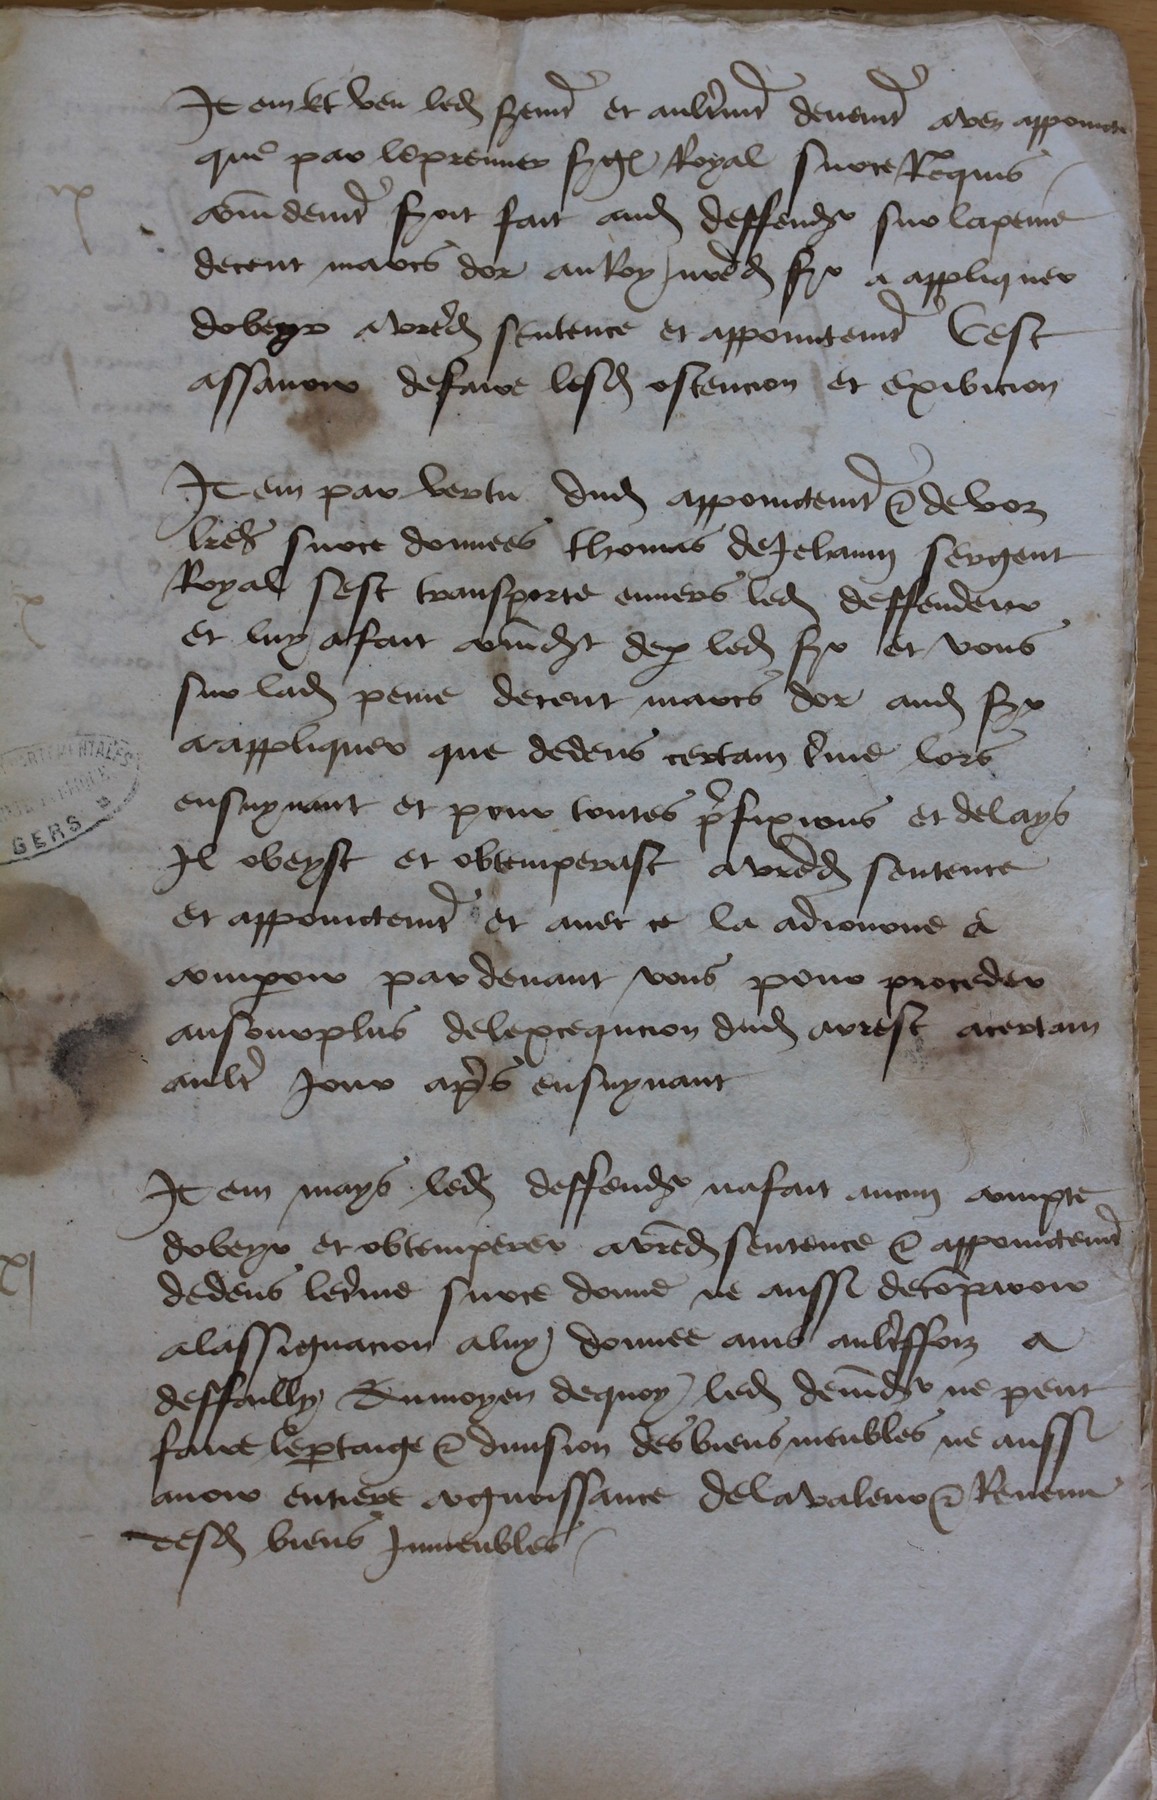 Item et veu led serment et aultrement deuement avez appoincte
que par le premier sergent Royal sur ce Requis
commandement soit fait aud deffendeur sur la peine
de cent marcs dor au Roy nred sr a appliquer
dobeyr a vred sentence et appoinctement Cest
assavoir de faire lesd ostencion et exibicion
Item par vertu dud appoinctement & de voz
lres sur ce donnees thomas de Jehann sergent
Royal sest transporte envers led deffendeur
et luy a fait commandement de par led sr et vous
sur lad peine de cent marcs dor aud sr
a appliquer que dedens certain terme lors
ensuyvant et pour toutes prefixions et delays
Il obeyst et obtemperast a vred sentence
et appoinctement et avec ce la adiourne a
comparoir par devant vous pour proceder
au sourplus de lexcequcion dud arrest a certain
aultre Jour apres ensuyvant
Item mays led deffendeur na fait aucun compte
dobeyr et obtemperer a vred sentence & appoinctement
dedens le terme sur ce donne ne aussi de comparoir
a lassignacion a luy donnee ains aultreffoiz a
deffailly Au moyen de quoy led demandeur ne peut
faire le partaige & division des biens meubles ne aussi
avoir entiere cognoissance de la valeur & Revenu
desd biens Inmeubles
x
xj
GERS